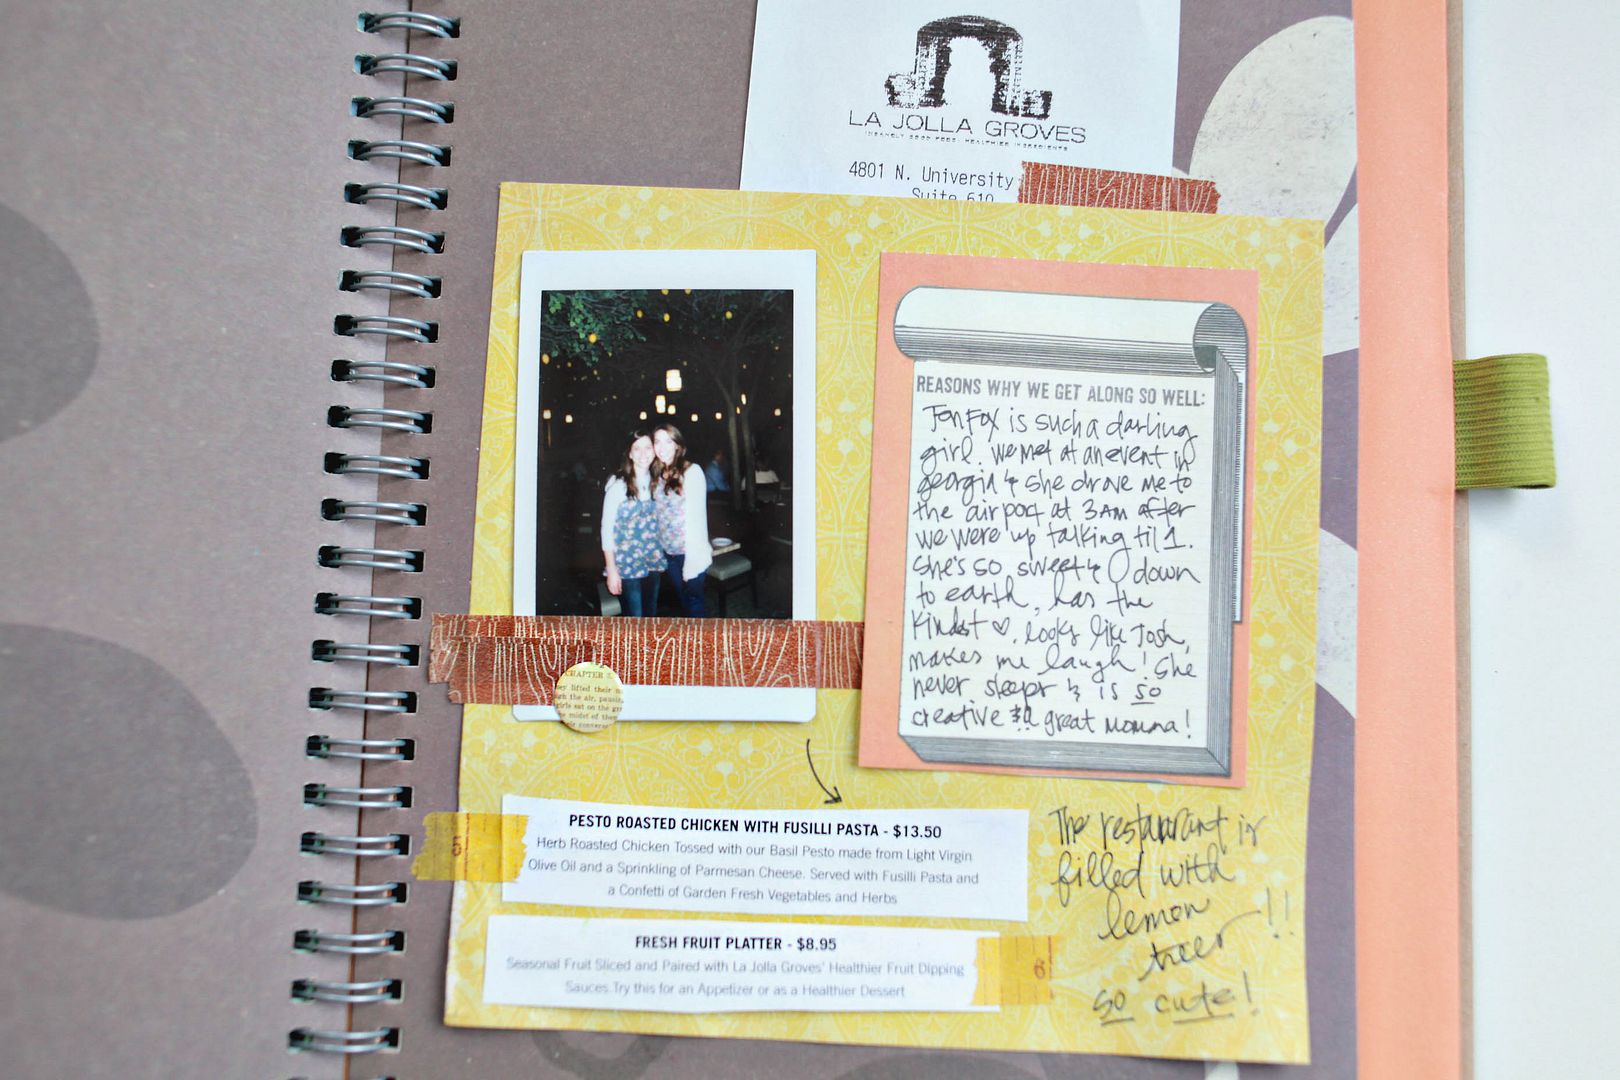 LA JOLLA GROVES
INSANELY GOOD FOOD. HEALTHIER INGREDIENTS
4801 N. University
Suite 610
REASONS WHY WE GET ALONG SO WELL:
Jen Fox is such a darling
girl. We met at an event in
georgia & she drove me to
the airport at 3AM after
we were up talking til 1.
She's so sweet & down
to earth, has the
kindest ♡, looks like Josh,
makes me laugh! She
never sleeps & is so
creative & a great momma!
CHAPTER
ey lifted their
gh the air, pausi
girls sat on the gr
e midst of the
eir convers
PESTO ROASTED CHICKEN WITH FUSILLI PASTA - $13.50
Herb Roasted Chicken Tossed with our Basil Pesto made from Light Virgin
Olive Oil and a Sprinkling of Parmesan Cheese. Served with Fusilli Pasta and
a Confetti of Garden Fresh Vegetables and Herbs
5
FRESH FRUIT PLATTER - $8.95
Seasonal Fruit Sliced and Paired with La Jolla Groves' Healthier Fruit Dipping
Sauces.Try this for an Appetizer or as a Healthier Dessert
6
The restaurant is
filled with
lemon
trees!!
so cute!